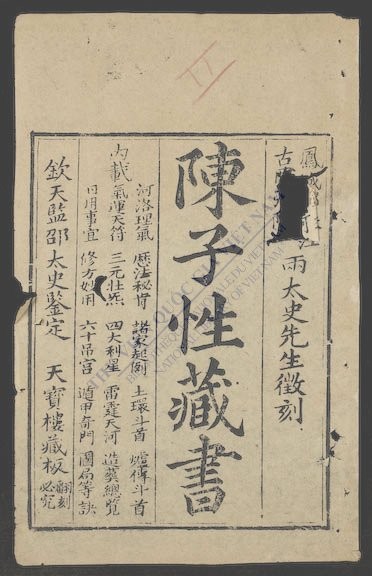 鳳城
古
雨太史先生徵刻
陳子性藏書
內載
河洛理氣 歷法秘旨 諸家起例 土環斗首 爐傳斗首
氣運天符 三元壯炁 四大利星 雷霆天河 造葬總覽
日用事宜 修方妙用 六十吊宮 遁甲奇門 圖局等訣
欽天監邵太史鑒定 天寶樓藏板 翻刻必究
QUỐC GIA VIỆT NAM
NATIONALE DU VIETNAM
OF VIETNAM